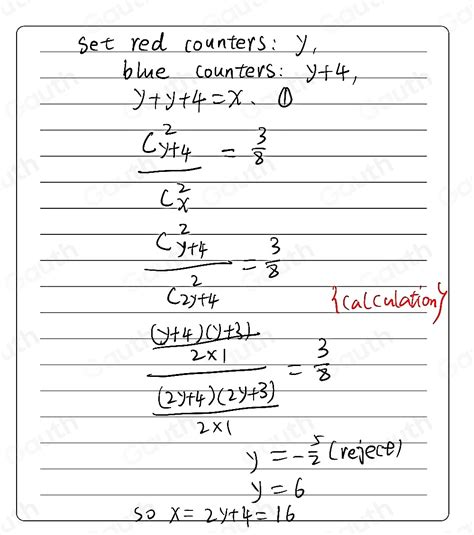 Set red counters: y,
blue counters: y+4,
y+y+4=x. ①
C²y+4 / C²x = 3/8
C²y+4 / C²2y+4 = 3/8
{calculation}
(y+4)(y+3) / 2×1 / (2y+4)(2y+3) / 2×1 = 3/8
y = -5/2 (reject)
y = 6
so x = 2y+4 = 16
Gauth